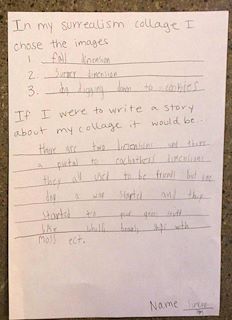 In my surrealism collage I
chose the images
1. fall dimension
2. Summer dimension
3. dog digging down to cookies
If I were to write a story
about my collage it would be...
there are two dimensions and theres
a portal to eachothers dimensions
they all used to be friends but one
day a war started and they
started to put gross stuff
like whole bowls with
moss ect.
Name